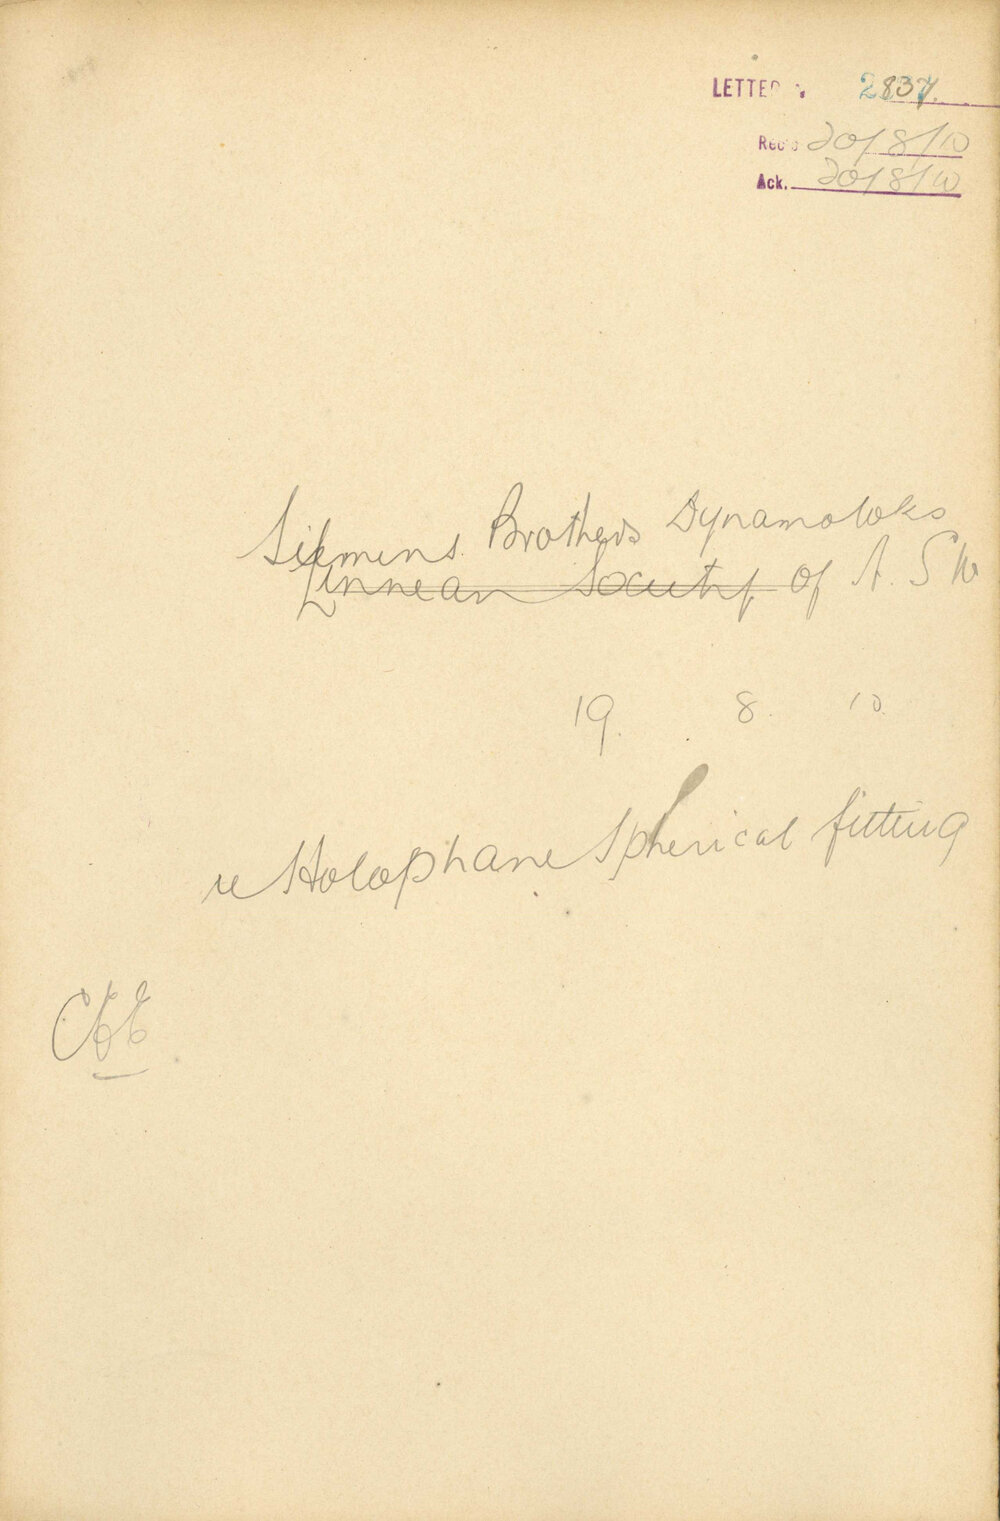 LETTER 2837.
Rec'd 20/8/10
Ack. 20/8/10
Siemens Brothers Dynamo Wks
Linnean Society of N. S W
19. 8. 10.
re Holophane Spherical fitting